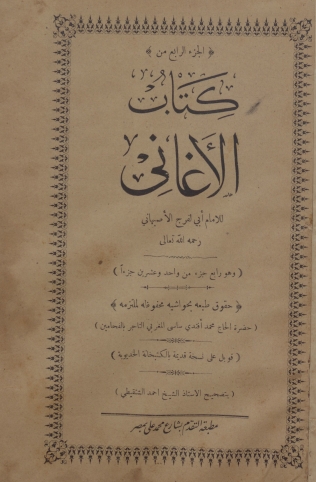 ﴿ الجزء الرابع من ﴾
كِتَابُ
الأَغَانِي
للامام أبي الفرج الأصبهاني
رحمه الله تعالى
( وهو رابع جزء من واحد وعشرين جزءاً )
﴿ حقوق طبعه بحواشيه محفوظه لملتزمه ﴾
( حضرة الحاج محمد أفندي ساسي المغربي التاجر بالفحامين )
( قوبل على نسخة قديمة بالكتبخانة الخديوية )
( بتصحيح الاستاذ الشيخ احمد الشنقيطي )
مطبعة التقدم بشارع محمد علي بمصر